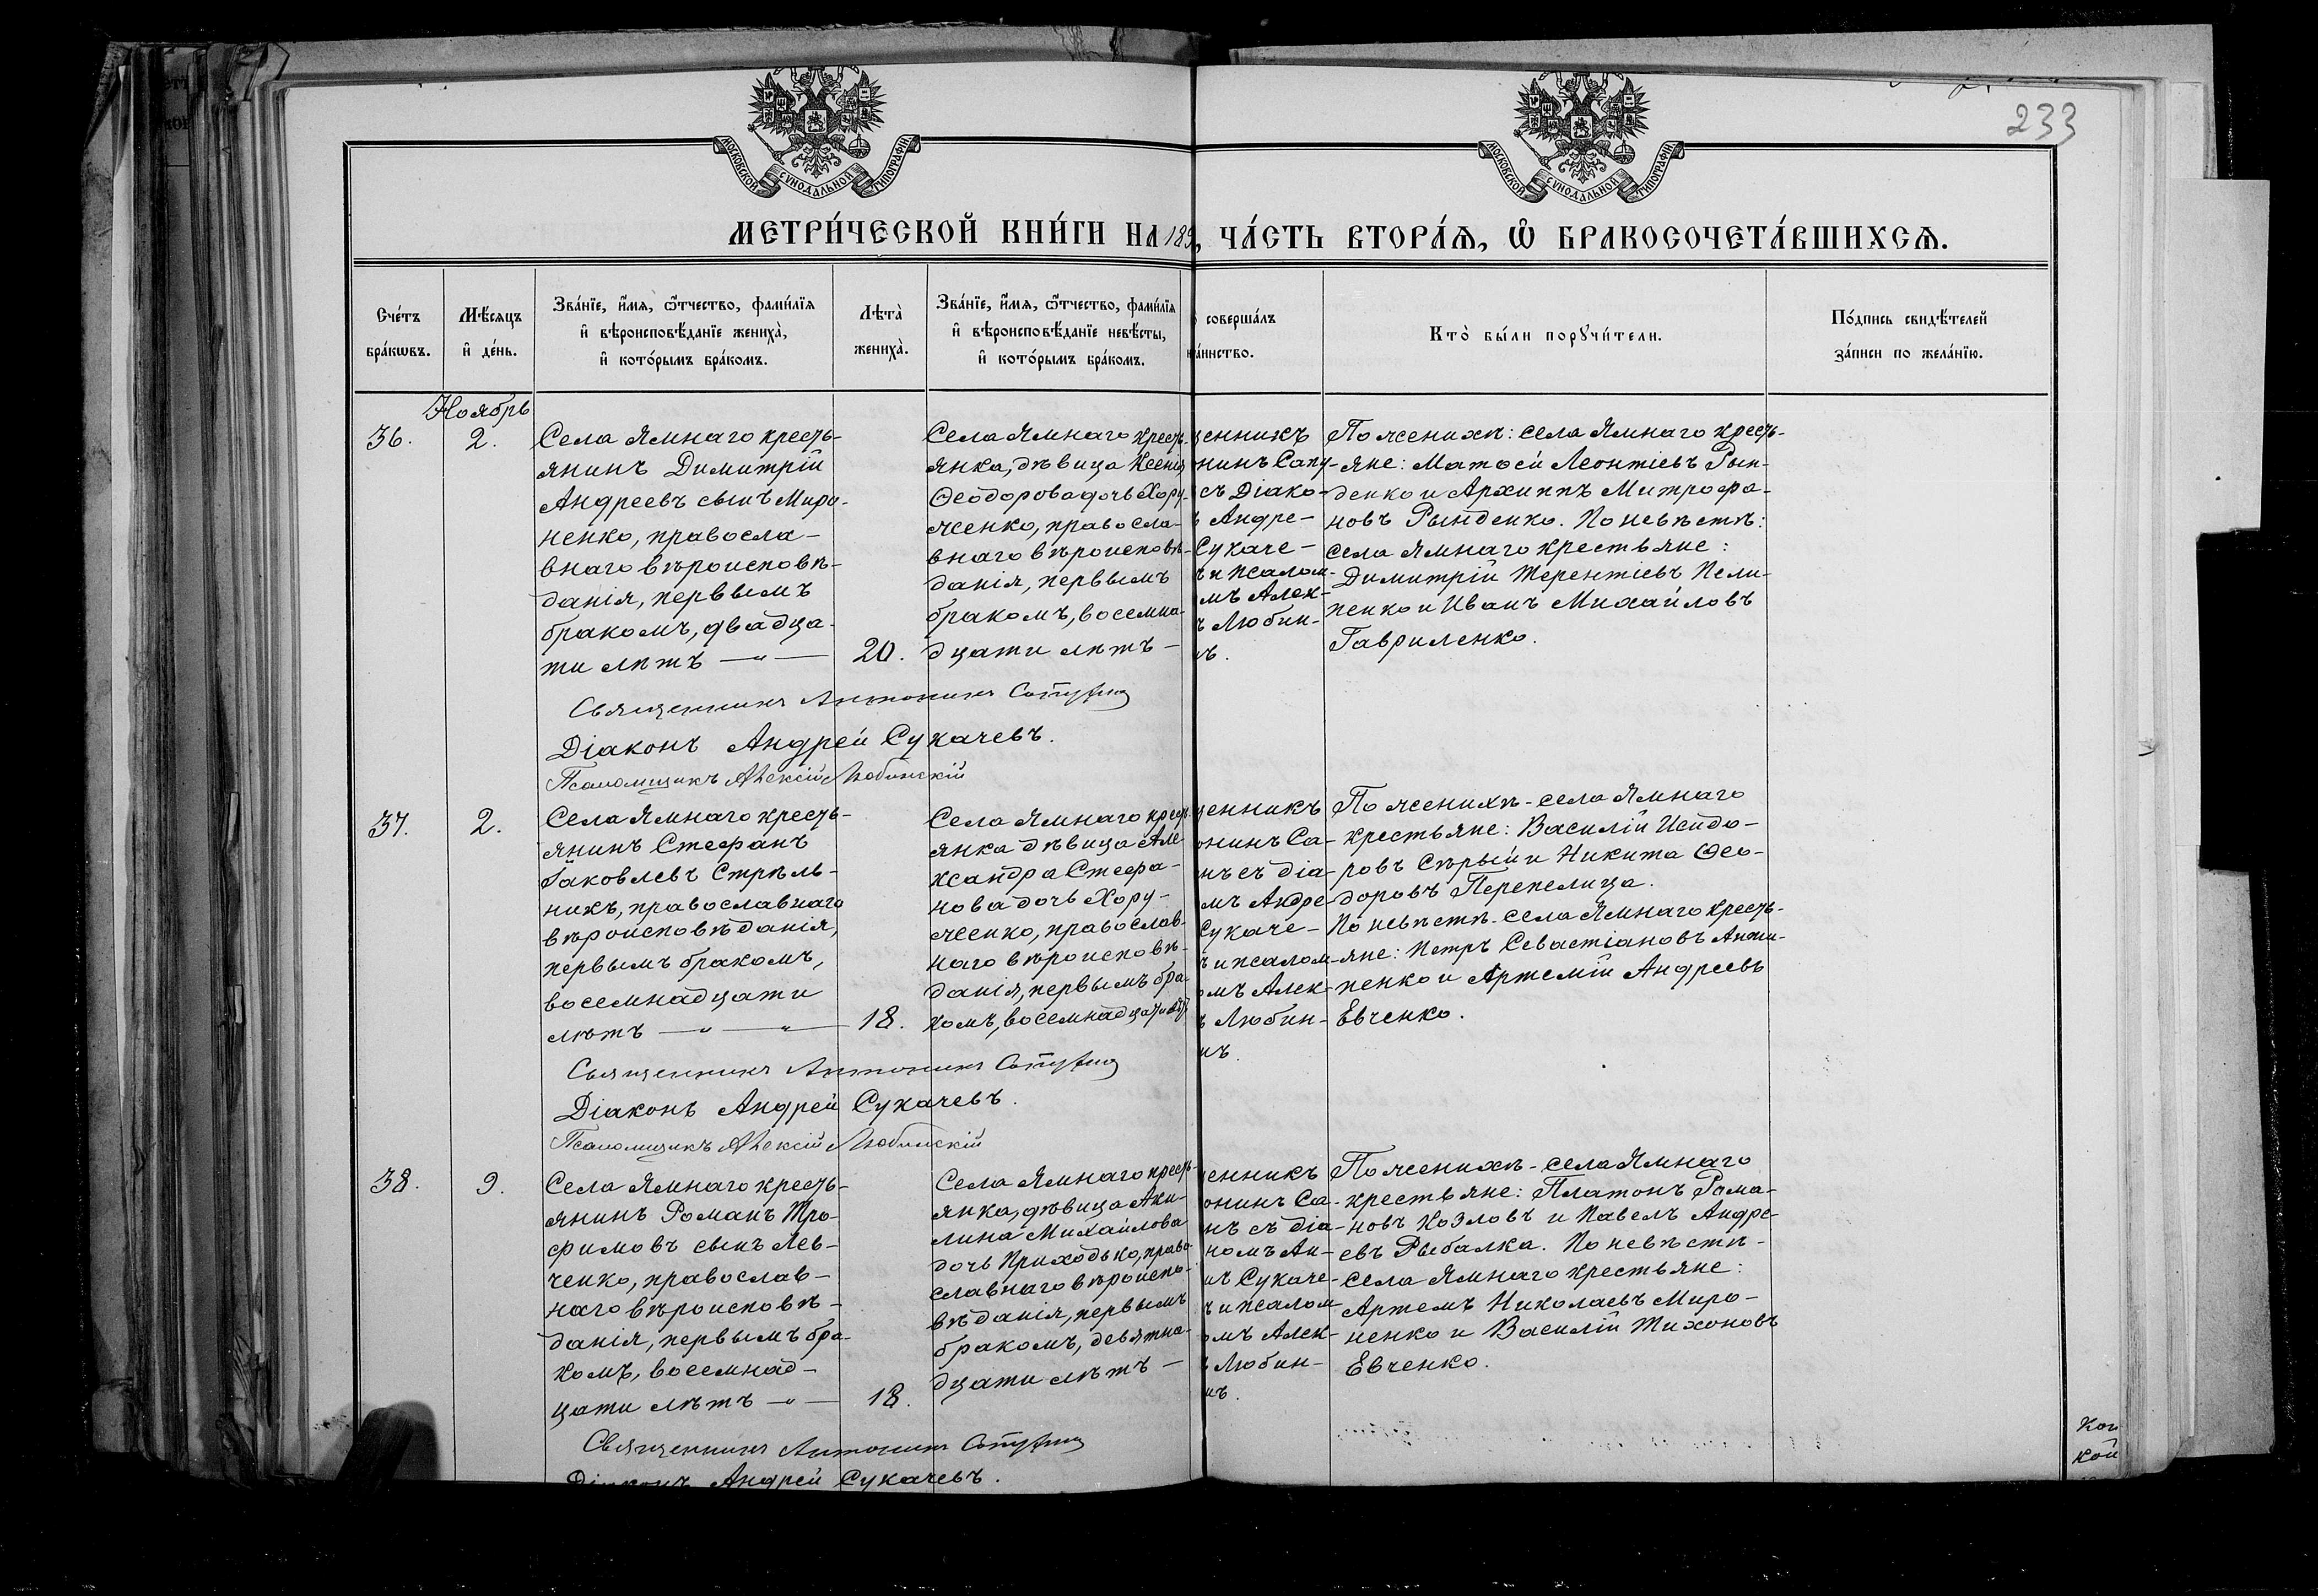 233
МОСКОВСКОЙ СѴНОДАЛЬНОЙ ТИПОГРАФІИ
МОСКОВСКОЙ СѴНОДАЛЬНОЙ ТИПОГРАФІИ
МЕТРИ́ЧЕСКОЙ КНИ́ГИ НА 189, ЧА́СТЬ ВТОРА́Ѧ, Ѡ҆ БРАКОСОЧЕТА́ВШИХСѦ.
Сче́тъ
бра́кѡвъ.
Мѣ́сяцъ
и҆ де́нь.
Зва́нїе, и҆́мѧ, ѻ҆́тчество, фами́лїѧ
и҆ вѣроисповѣ́данїе жениха̀,
и҆ кото́рымъ бра́комъ.
Лѣта̀
жениха̀.
Зва́нїе, и҆́мѧ, ѻ҆́тчество, фами́лїѧ
и҆ вѣроисповѣ́данїе невѣ́сты,
и҆ кото́рымъ бра́комъ.
соверша́лъ
та́инство.
Кто̀ бы́ли порꙋчи́тели.
По́дпись свидѣ́телей
за́писи по жела́нїю.
Ноябрь
36.
2.
Села Ямнаго кресть-
янинъ Димитрій
Андреевъ сынъ Миро-
ненко, правосла-
внаго вѣроисповѣ-
данія, первымъ
бракомъ, двадца-
ти лѣтъ — " —
20.
Села Ямнаго кресть-
янка, дѣвица Ксенія
Ѳеодорова дочь Хору-
женко, правосла-
внаго вѣроисповѣ-
данія, первымъ
бракомъ, восемна-
дцати лѣтъ —
щенникъ
онинъ Сапу-
съ Діако-
ъ Андре-
Сукаче-
ъ и псалом-
мъ Алек-
ъ Любин-
ъ.
По женихѣ: села Ямнаго кресть-
яне: Матѳей Леонтіевъ Рын-
денко и Архиппъ Митрофа-
новъ Рынденко. По невѣстѣ:
села Ямнаго крестьяне:
Димитрій Терентіевъ Пели-
пенко и Иванъ Михайловъ
Гавриленко.
Священникъ Антонинъ Сапухинъ
Діаконъ Андрей Сукачевъ.
Псаломщикъ Алексій Любинскій
37.
2.
Села Ямнаго кресть-
янинъ Стефанъ
Іаковлевъ Стрѣль-
никъ, православнаго
вѣроисповѣданія,
первымъ бракомъ,
восемнадцати
лѣтъ — " — " —
18.
Села Ямнаго крест-
янка дѣвица Але-
ксандра Стефа-
нова дочь Хору-
женко, православ-
наго вѣроисповѣ-
данія, первымъ бра-
комъ, восемнадцати лѣтъ
щенникъ
онинъ Са-
нъ съ діа-
омъ Андре-
Сукаче-
ъ и псалом-
омъ Алек-
ъ Любин-
мъ.
По женихѣ - села Ямнаго
крестьяне: Василій Исидо-
ровъ Сѣрый и Никита Ѳео-
доровъ Перепелица.
По невѣстѣ - села Ямнаго кресть-
яне: Петръ Севастіановъ Анти-
пенко и Артемій Андреевъ
Евченко.
Священникъ Антонинъ Сапухинъ
Діаконъ Андрей Сукачевъ.
Псаломщикъ Алексій Любинскій
38.
9.
Села Ямнаго кресть-
янинъ Романъ Тро-
фимовъ сынъ Лев-
ченко, православ-
наго вѣроисповѣ-
данія, первымъ бра-
комъ, восемнад-
цати лѣтъ — " —
18.
Села Ямнаго кресть-
янка, дѣвица Аки-
лина Михайлова
дочь Приходько, право-
славнаго вѣроиспо-
вѣданія, первымъ
бракомъ, девятна-
дцати лѣтъ —
щенникъ
онинъ Са-
нъ съ діа-
номъ Ан-
мъ Сукаче-
ъ и псалом-
омъ Алек-
ъ Любин-
мъ.
По женихѣ - села Ямнаго
крестьяне: Платонъ Рома-
новъ Козловъ и Павелъ Андре-
евъ Рыбалка. По невѣстѣ -
села Ямнаго крестьяне:
Артемъ Николаевъ Миро-
ненко и Василій Тихоновъ
Евченко.
Священникъ Антонинъ Сапухинъ
Діаконъ Андрей Сукачевъ.
кой